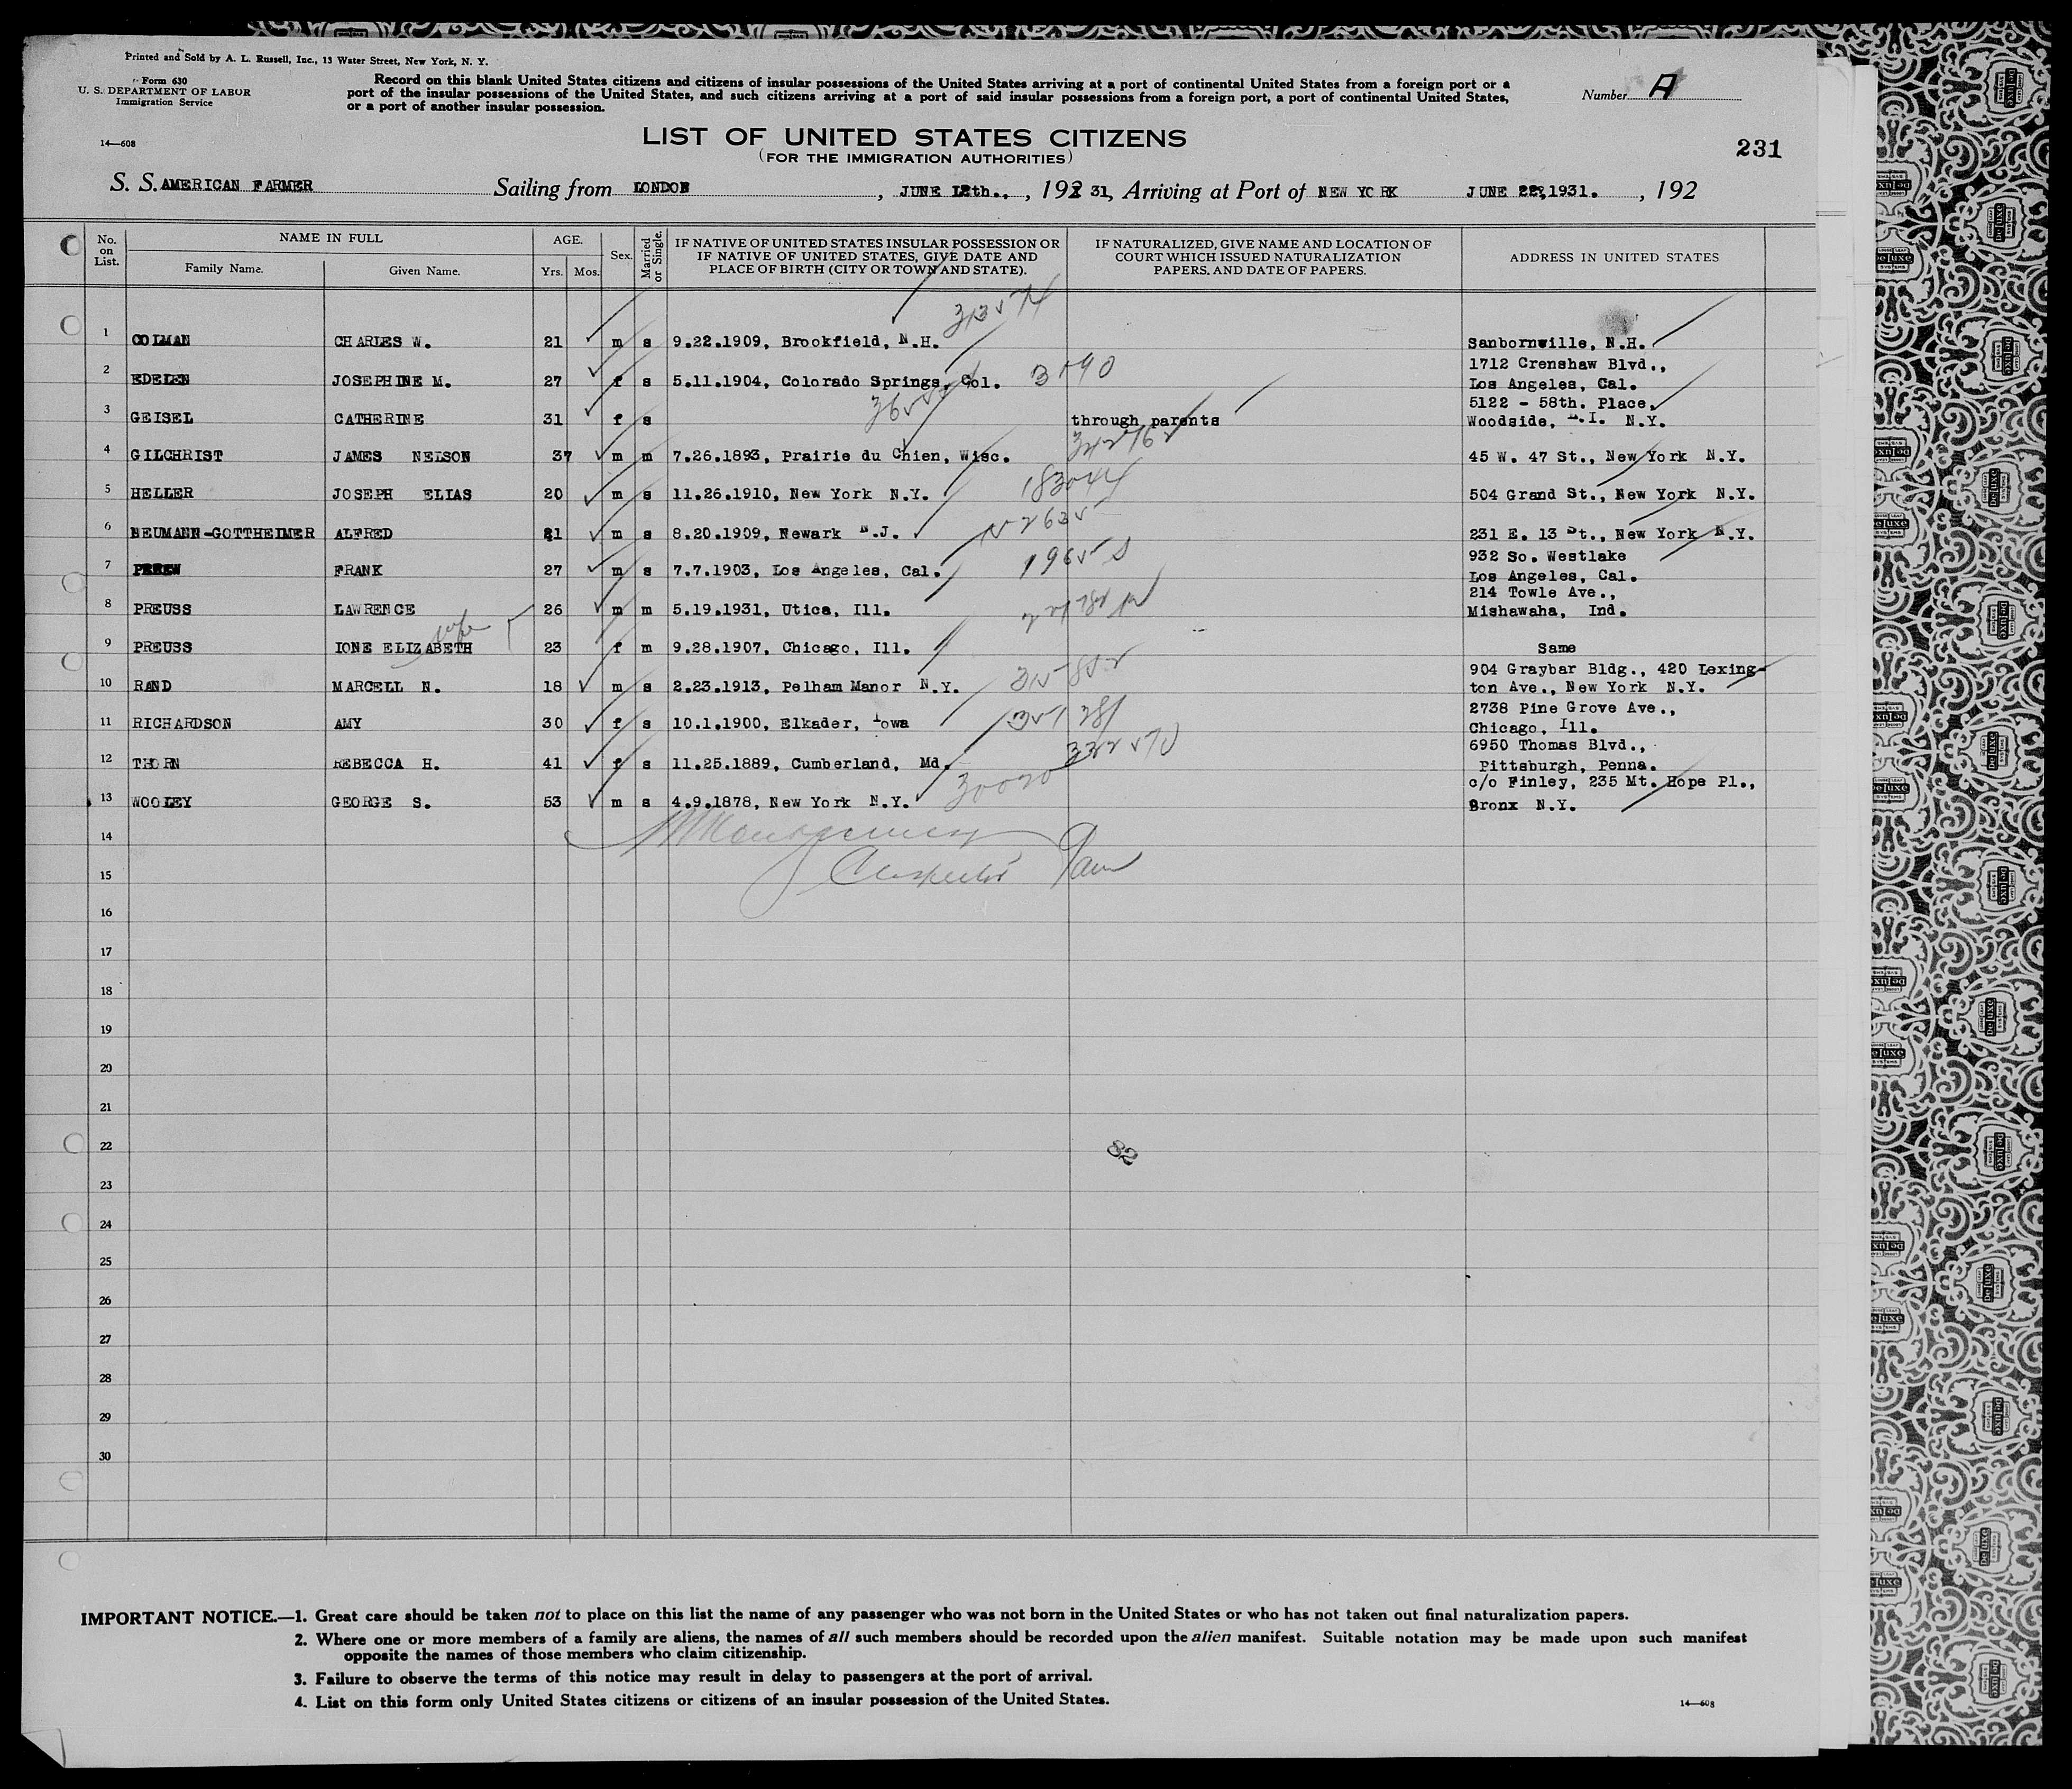 Printed and Sold by A. L. Russell, Inc., 13 Water Street, New York, N. Y.
Form 630
U. S. DEPARTMENT OF LABOR
Immigration Service
14—608
Record on this blank United States citizens and citizens of insular possessions of the United States arriving at a port of continental United States from a foreign port or a
port of the insular possessions of the United States, and such citizens arriving at a port of said insular possessions from a foreign port, a port of continental United States,
or a port of another insular possession.
Number A
LIST OF UNITED STATES CITIZENS
(FOR THE IMMIGRATION AUTHORITIES)
231
S. S. AMERICAN FARMER Sailing from LONDON, JUNE 12th., 192 31, Arriving at Port of NEW YORK JUNE 22, 1931., 192
No. on List. NAME IN FULL Family Name. Given Name. AGE. Yrs. Mos. Sex. Married or Single. IF NATIVE OF UNITED STATES INSULAR POSSESSION OR IF NATIVE OF UNITED STATES, GIVE DATE AND PLACE OF BIRTH (CITY OR TOWN AND STATE). IF NATURALIZED, GIVE NAME AND LOCATION OF COURT WHICH ISSUED NATURALIZATION PAPERS, AND DATE OF PAPERS. ADDRESS IN UNITED STATES
1 COLMAN CHARLES W. 21 m s 9.22.1909, Brookfield, N.H. Sanbornville, N.H.
2 EDELEN JOSEPHINE M. 27 f s 5.11.1904, Colorado Springs, Col. 1712 Crenshaw Blvd., Los Angeles, Cal.
3 GEISEL CATHERINE 31 f s through parents 5122 - 58th. Place, Woodside, L.I. N.Y.
4 GILCHRIST JAMES NELSON 37 m m 7.26.1893, Prairie du Chien, Wisc. 45 W. 47 St., New York N.Y.
5 HELLER JOSEPH ELIAS 20 m s 11.26.1910, New York N.Y. 18304 504 Grand St., New York N.Y.
6 NEUMANN-GOTTHEIMER ALFRED 21 m s 8.20.1909, Newark N.J. 231 E. 13 St., New York N.Y.
7 FRANK 27 m s 7.7.1903, Los Angeles, Cal. 932 So. Westlake Los Angeles, Cal.
8 PREUSS LAWRENCE 26 m m 5.19.1931, Utica, Ill. 214 Towle Ave., Mishawaha, Ind.
9 PREUSS IONE ELIZABETH wife 23 f m 9.28.1907, Chicago, Ill. Same
10 RAND MARCELL N. 18 m s 2.23.1913, Pelham Manor N.Y. 904 Graybar Bldg., 420 Lexington Ave., New York N.Y.
11 RICHARDSON AMY 30 f s 10.1.1900, Elkader, Iowa 2738 Pine Grove Ave., Chicago, Ill.
12 THORN REBECCA H. 41 f s 11.25.1889, Cumberland, Md. 6950 Thomas Blvd., Pittsburgh, Penna.
13 WOOLEY GEORGE S. 53 m s 4.9.1878, New York N.Y. c/o Finley, 235 Mt. Hope Pl., Bronx N.Y.
14 Montgomery
15 Inspector
16
17
18
19
20
21
22
82
23
24
25
26
27
28
29
30
IMPORTANT NOTICE.—1. Great care should be taken not to place on this list the name of any passenger who was not born in the United States or who has not taken out final naturalization papers.
2. Where one or more members of a family are aliens, the names of all such members should be recorded upon the alien manifest. Suitable notation may be made upon such manifest
opposite the names of those members who claim citizenship.
3. Failure to observe the terms of this notice may result in delay to passengers at the port of arrival.
4. List on this form only United States citizens or citizens of an insular possession of the United States.
14—608